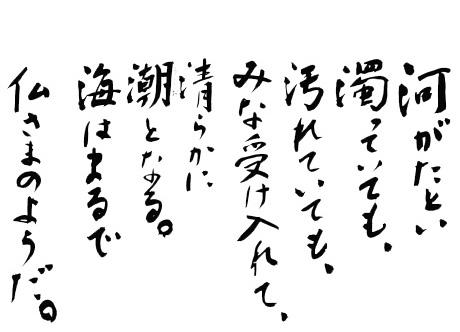 河がたとい
濁っていても、
汚れていても、
みな受け入れて、
清らかに
潮となる。
海はまるで
仏さまのようだ。